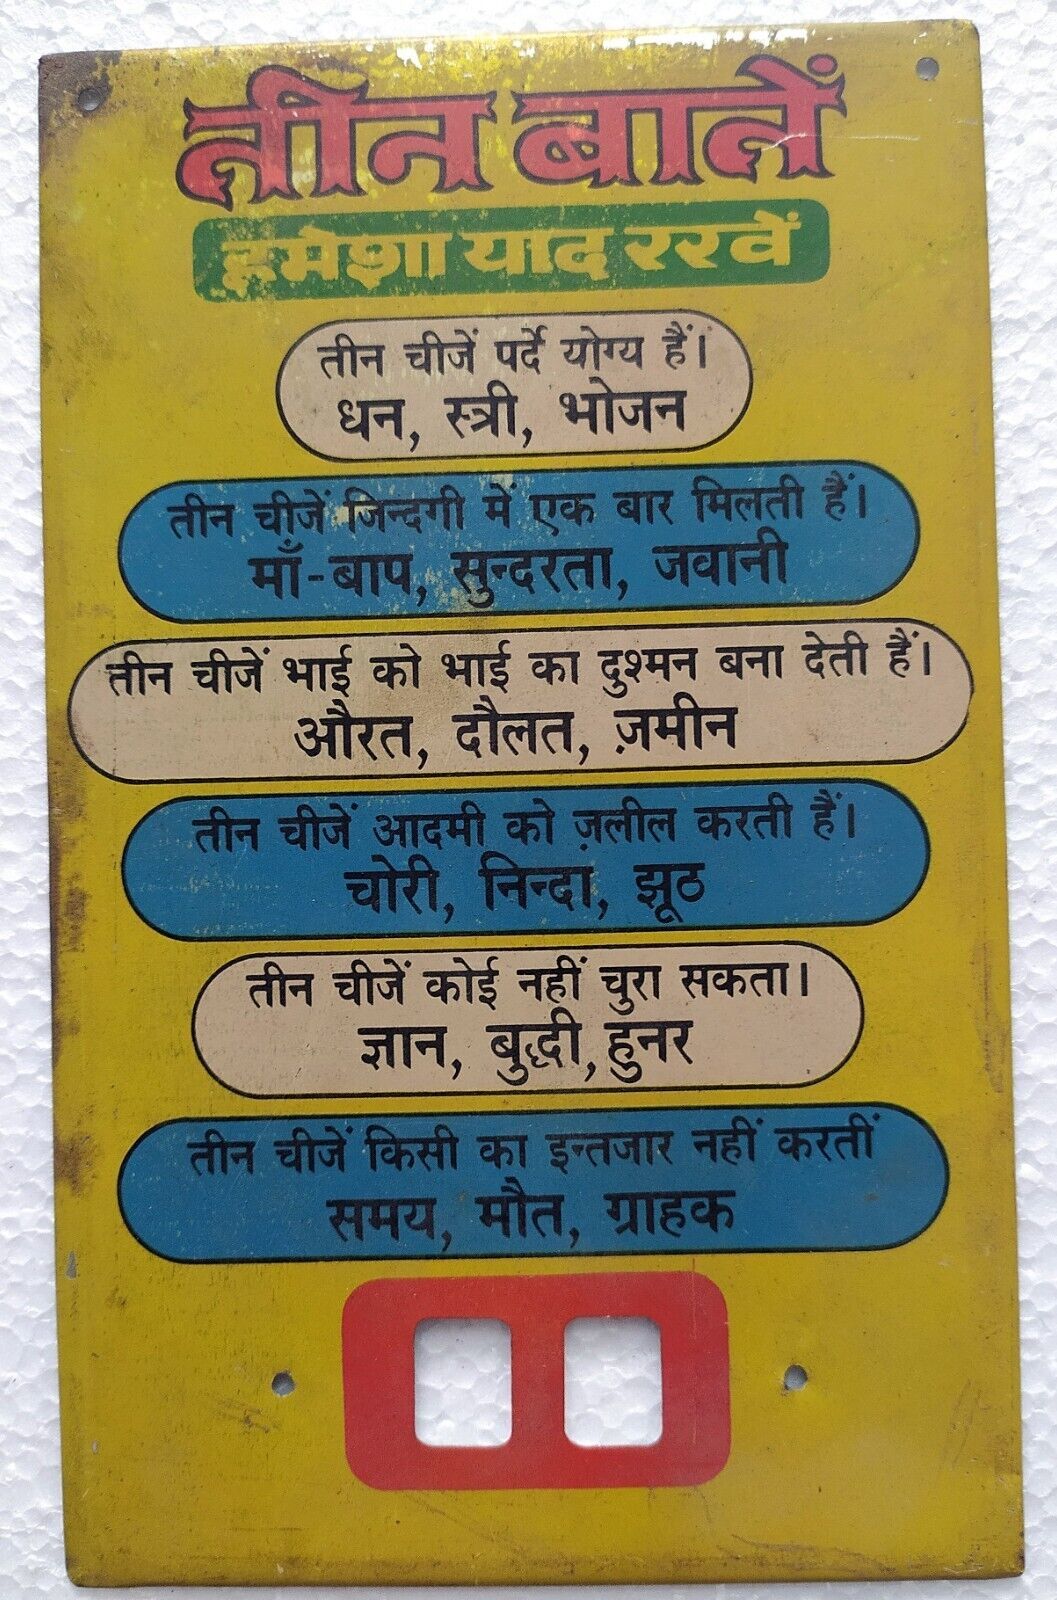 तीन बातें
हमेशा याद रखें
तीन चीजें पर्दे योग्य हैं।
धन, स्त्री, भोजन
तीन चीजें जिन्दगी में एक बार मिलती हैं।
माँ-बाप, सुन्दरता, जवानी
तीन चीजें भाई को भाई का दुश्मन बना देती हैं।
औरत, दौलत, ज़मीन
तीन चीजें आदमी को ज़लील करती हैं।
चोरी, निन्दा, झूठ
तीन चीजें कोई नहीं चुरा सकता।
ज्ञान, बुद्धी, हुनर
तीन चीजें किसी का इन्तजार नहीं करतीं
समय, मौत, ग्राहक